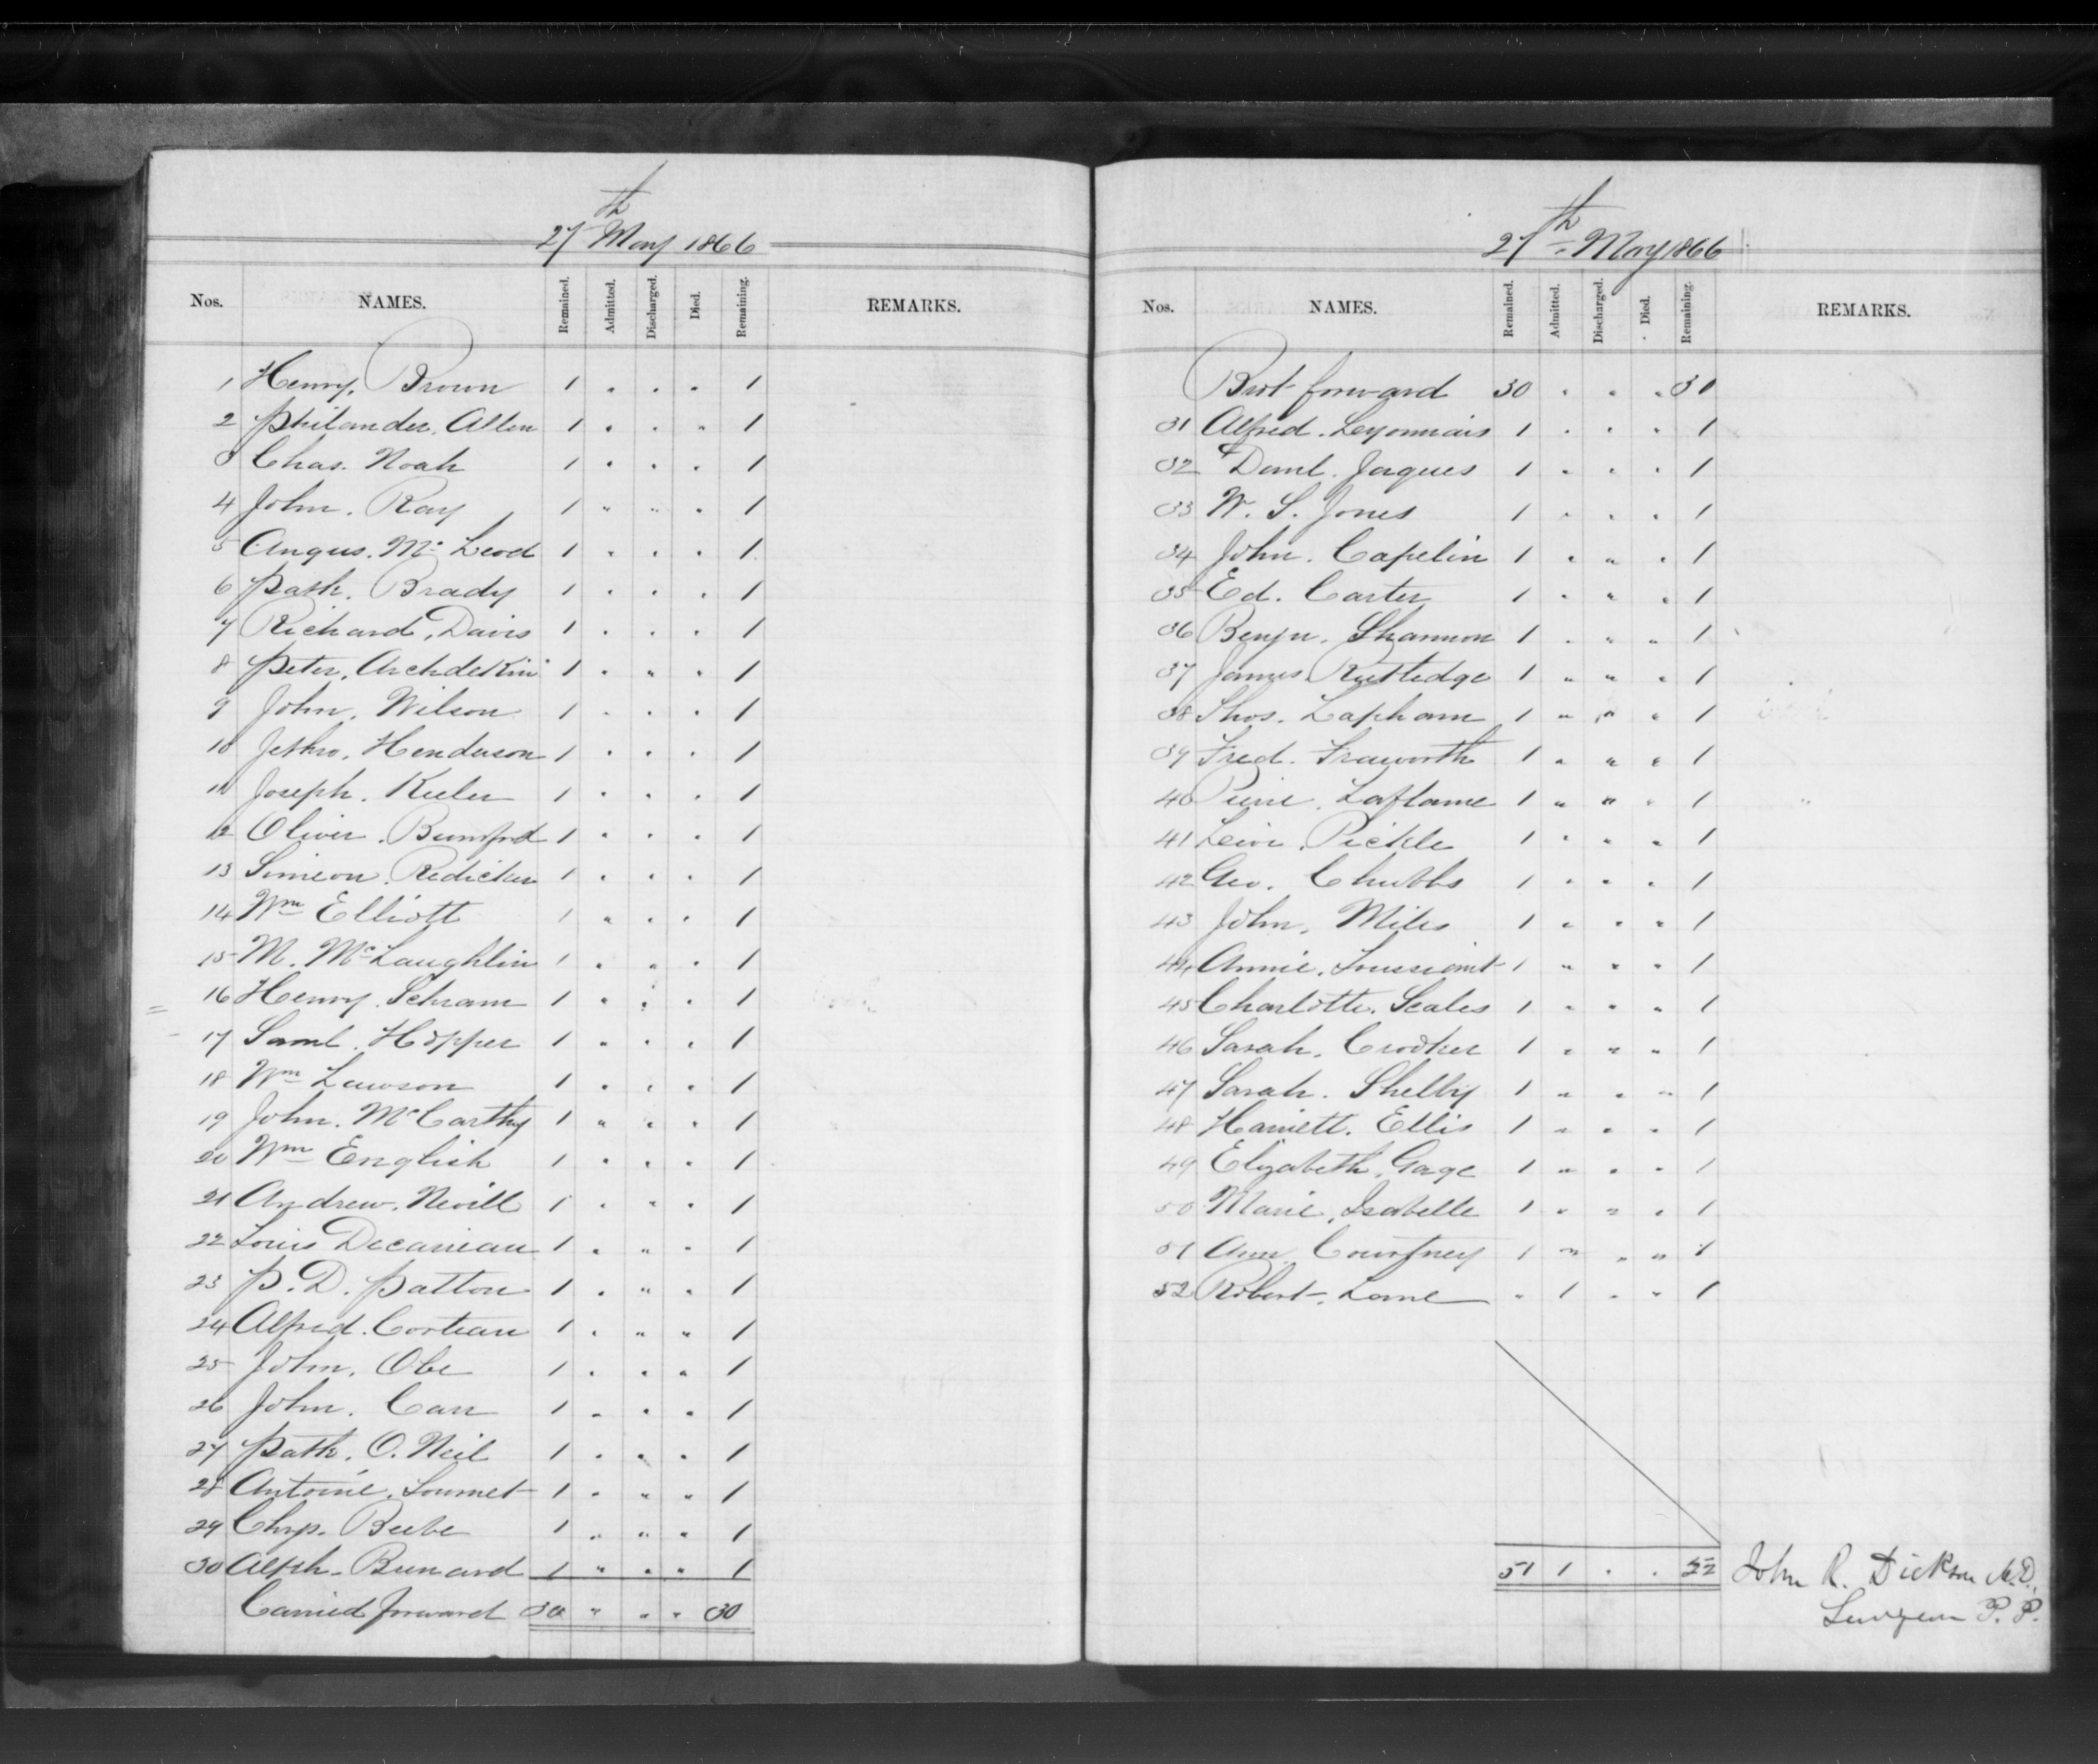 27th May 1866
Nos. NAMES. Remained. Admitted. Discharged. Died. Remaining. REMARKS.
1 Henry. Brown 1 " " " 1
2 Philander. Allen 1 " " " 1
3 Chas. Noah 1 " " " 1
4 John. Ray 1 " " " 1
5 Angus. Mc Leod 1 " " " 1
6 Patk. Brady 1 " " " 1
7 Richard. Davis 1 " " " 1
8 Peter. Archdekin 1 " " " 1
9 John. Wilson 1 " " " 1
10 Jethro. Henderson 1 " " " 1
11 Joseph. Keeler 1 " " " 1
12 Oliver. Bumford 1 " " " 1
13 Simeon. Redicker 1 " " " 1
14 Wm Elliott 1 " " " 1
15 M. McLaughlin 1 " " " 1
16 Henry. Schram 1 " " " 1
17 Saml. Hopper 1 " " " 1
18 Wm Lawson 1 " " " 1
19 John. McCarthy 1 " " " 1
20 Wm English 1 " " " 1
21 Andrew. Nevill 1 " " " 1
22 Louis Decarieau 1 " " " 1
23 P. D. Patton 1 " " " 1
24 Alfred. Corteau 1 " " " 1
25 John. Obe 1 " " " 1
26 John. Carr 1 " " " 1
27 Patk. O. Neil 1 " " " 1
28 Antoine. Loumet 1 " " " 1
29 Chrs. Beebe 1 " " " 1
30 Alph. Bunard 1 " " " 1
Carried forward 30 " " " 30
27th May 1866
Nos. NAMES. Remained. Admitted. Discharged. Died. Remaining. REMARKS.
Brot forward 30 " " " 30
31 Alfred. Leyonnais 1 " " " 1
32 Danl. Jaques 1 " " " 1
33 W. S. Jones 1 " " " 1
34 John. Capelin 1 " " " 1
35 Ed. Carter 1 " " " 1
36 Benjn. Shannon 1 " " " 1
37 James. Rutledge 1 " " " 1
38 Thos. Lapham 1 " " " 1
39 Fred. Fraworth 1 " " " 1
40 Pierre. Laflame 1 " " " 1
41 Levi. Pickle 1 " " " 1
42 Geo. Chubbs 1 " " " 1
43 John. Miles 1 " " " 1
44 Annie. Toussiant 1 " " " 1
45 Charlotte. Scales 1 " " " 1
46 Sarah. Crooker 1 " " " 1
47 Sarah. Shelby 1 " " " 1
48 Harriett. Ellis 1 " " " 1
49 Elizabeth. Gage 1 " " " 1
50 Marie. Isabelle 1 " " " 1
51 Ann. Courtney 1 " " " 1
52 Robert. Lane " 1 " " 1
51 1 " " 52 John R. Dickson M.D.,
Surgeon P. P.